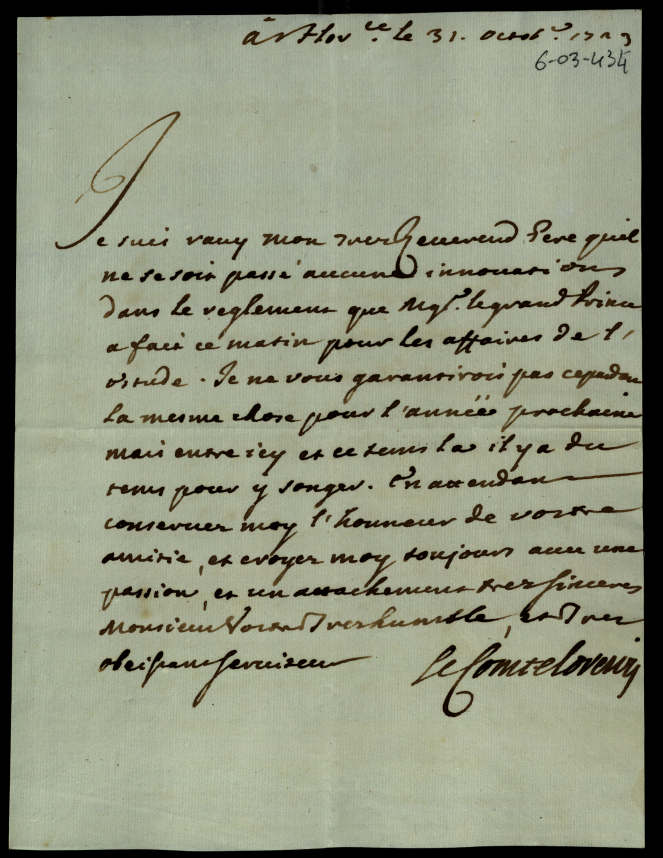 à Flor.ce le 31. Octob.e 1723
6-03-434
Je suis ravy mon Tres Reverend Pere quil
ne se soit passé aucune innovations
dans le reglement que Mgr. le grand Prince
a fait ce matin pour les affaires de l'
. Je ne vous garantirois pas cependan
la mesme chose pour l'année prochaine
mais entre icy et ce tems la il y a du
tems pour y songer. En attendan
conserver moy l'honneur de vostre
amitie, et croyer moy toujours avec une
passion, et un attachement tres sinceres
Monsieur Vostre Tres humble, et Tres
obeissant serviteur Le Comte